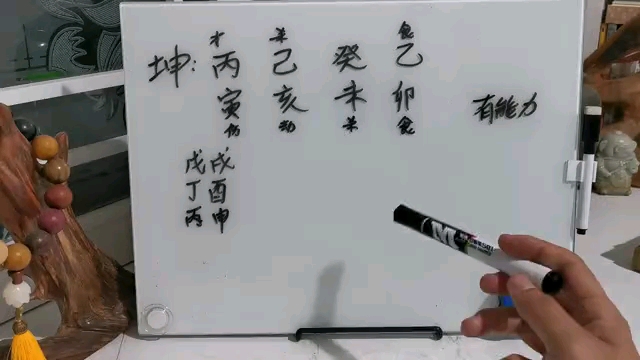 才 杀 食
坤: 丙 己 癸 乙
寅 亥 未 卯
伤 劫 杀 食
有能力
戊 戌
丁 酉
丙 申
M